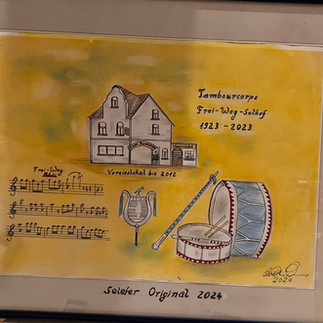 Tambourcorps
Frei-Weg-Selhof
1923-2023
Vereinslokal bis 2012
Frei-Weg
2024
Selefer Original 2024